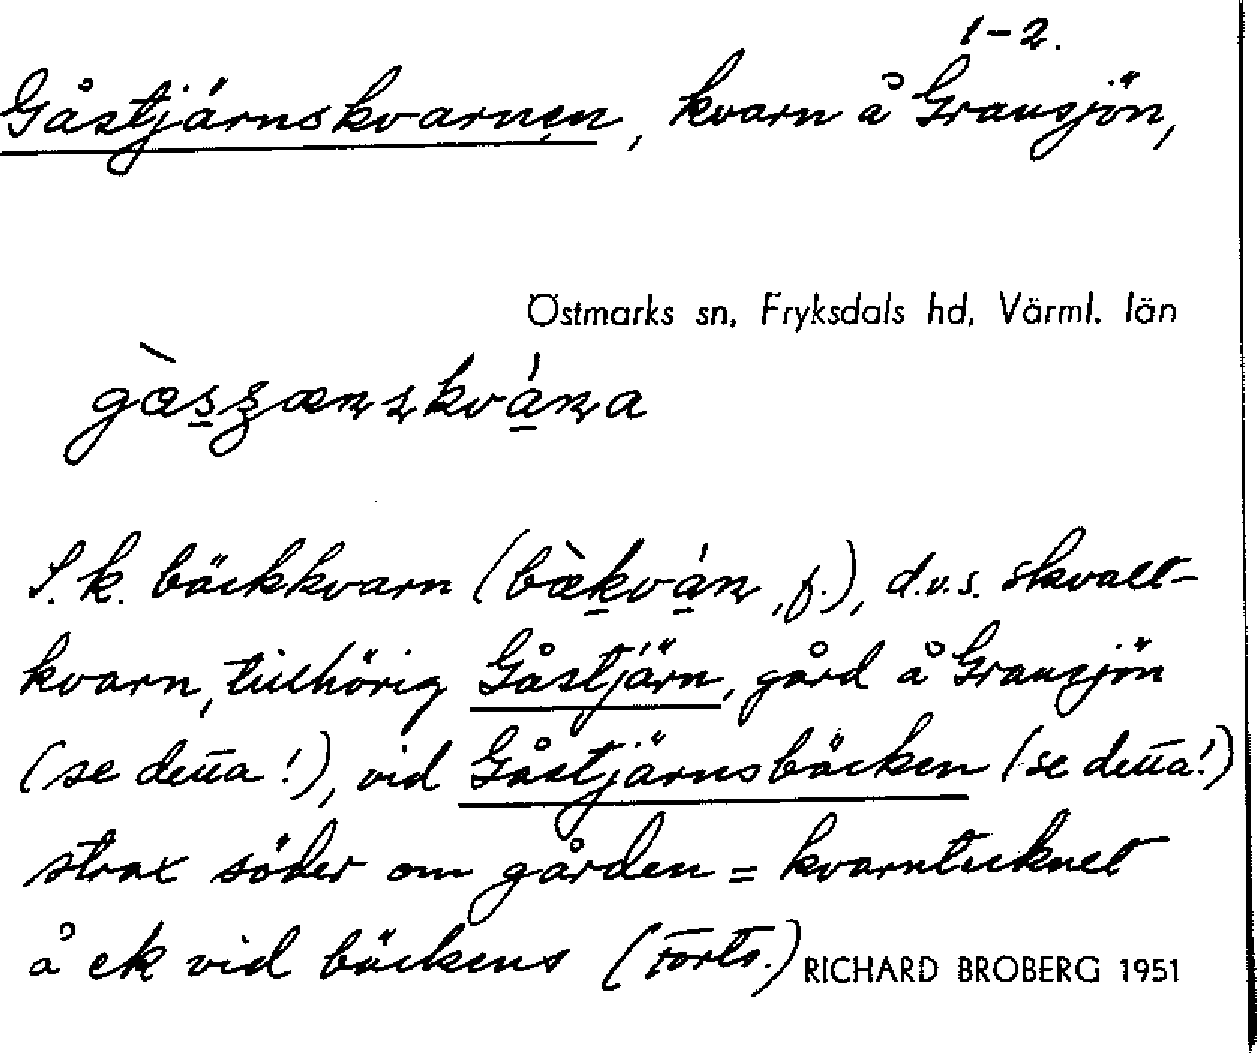 1-2.
Gåstjärnskvarnen, kvarn å Gransjön,
Östmarks sn, Fryksdals hd, Värml. län
S.k. bäckkvarn (bæ̀kván, f.), d.v.s. skvalt-
kvarn, tillhörig Gåstjärn, gård å Gransjön
(se detta!), vid Gåstjärnsbäcken (se detta!)
strax söder om gården = kvarntecknet
å ek vid bäckens (Forts.) RICHARD BROBERG 1951